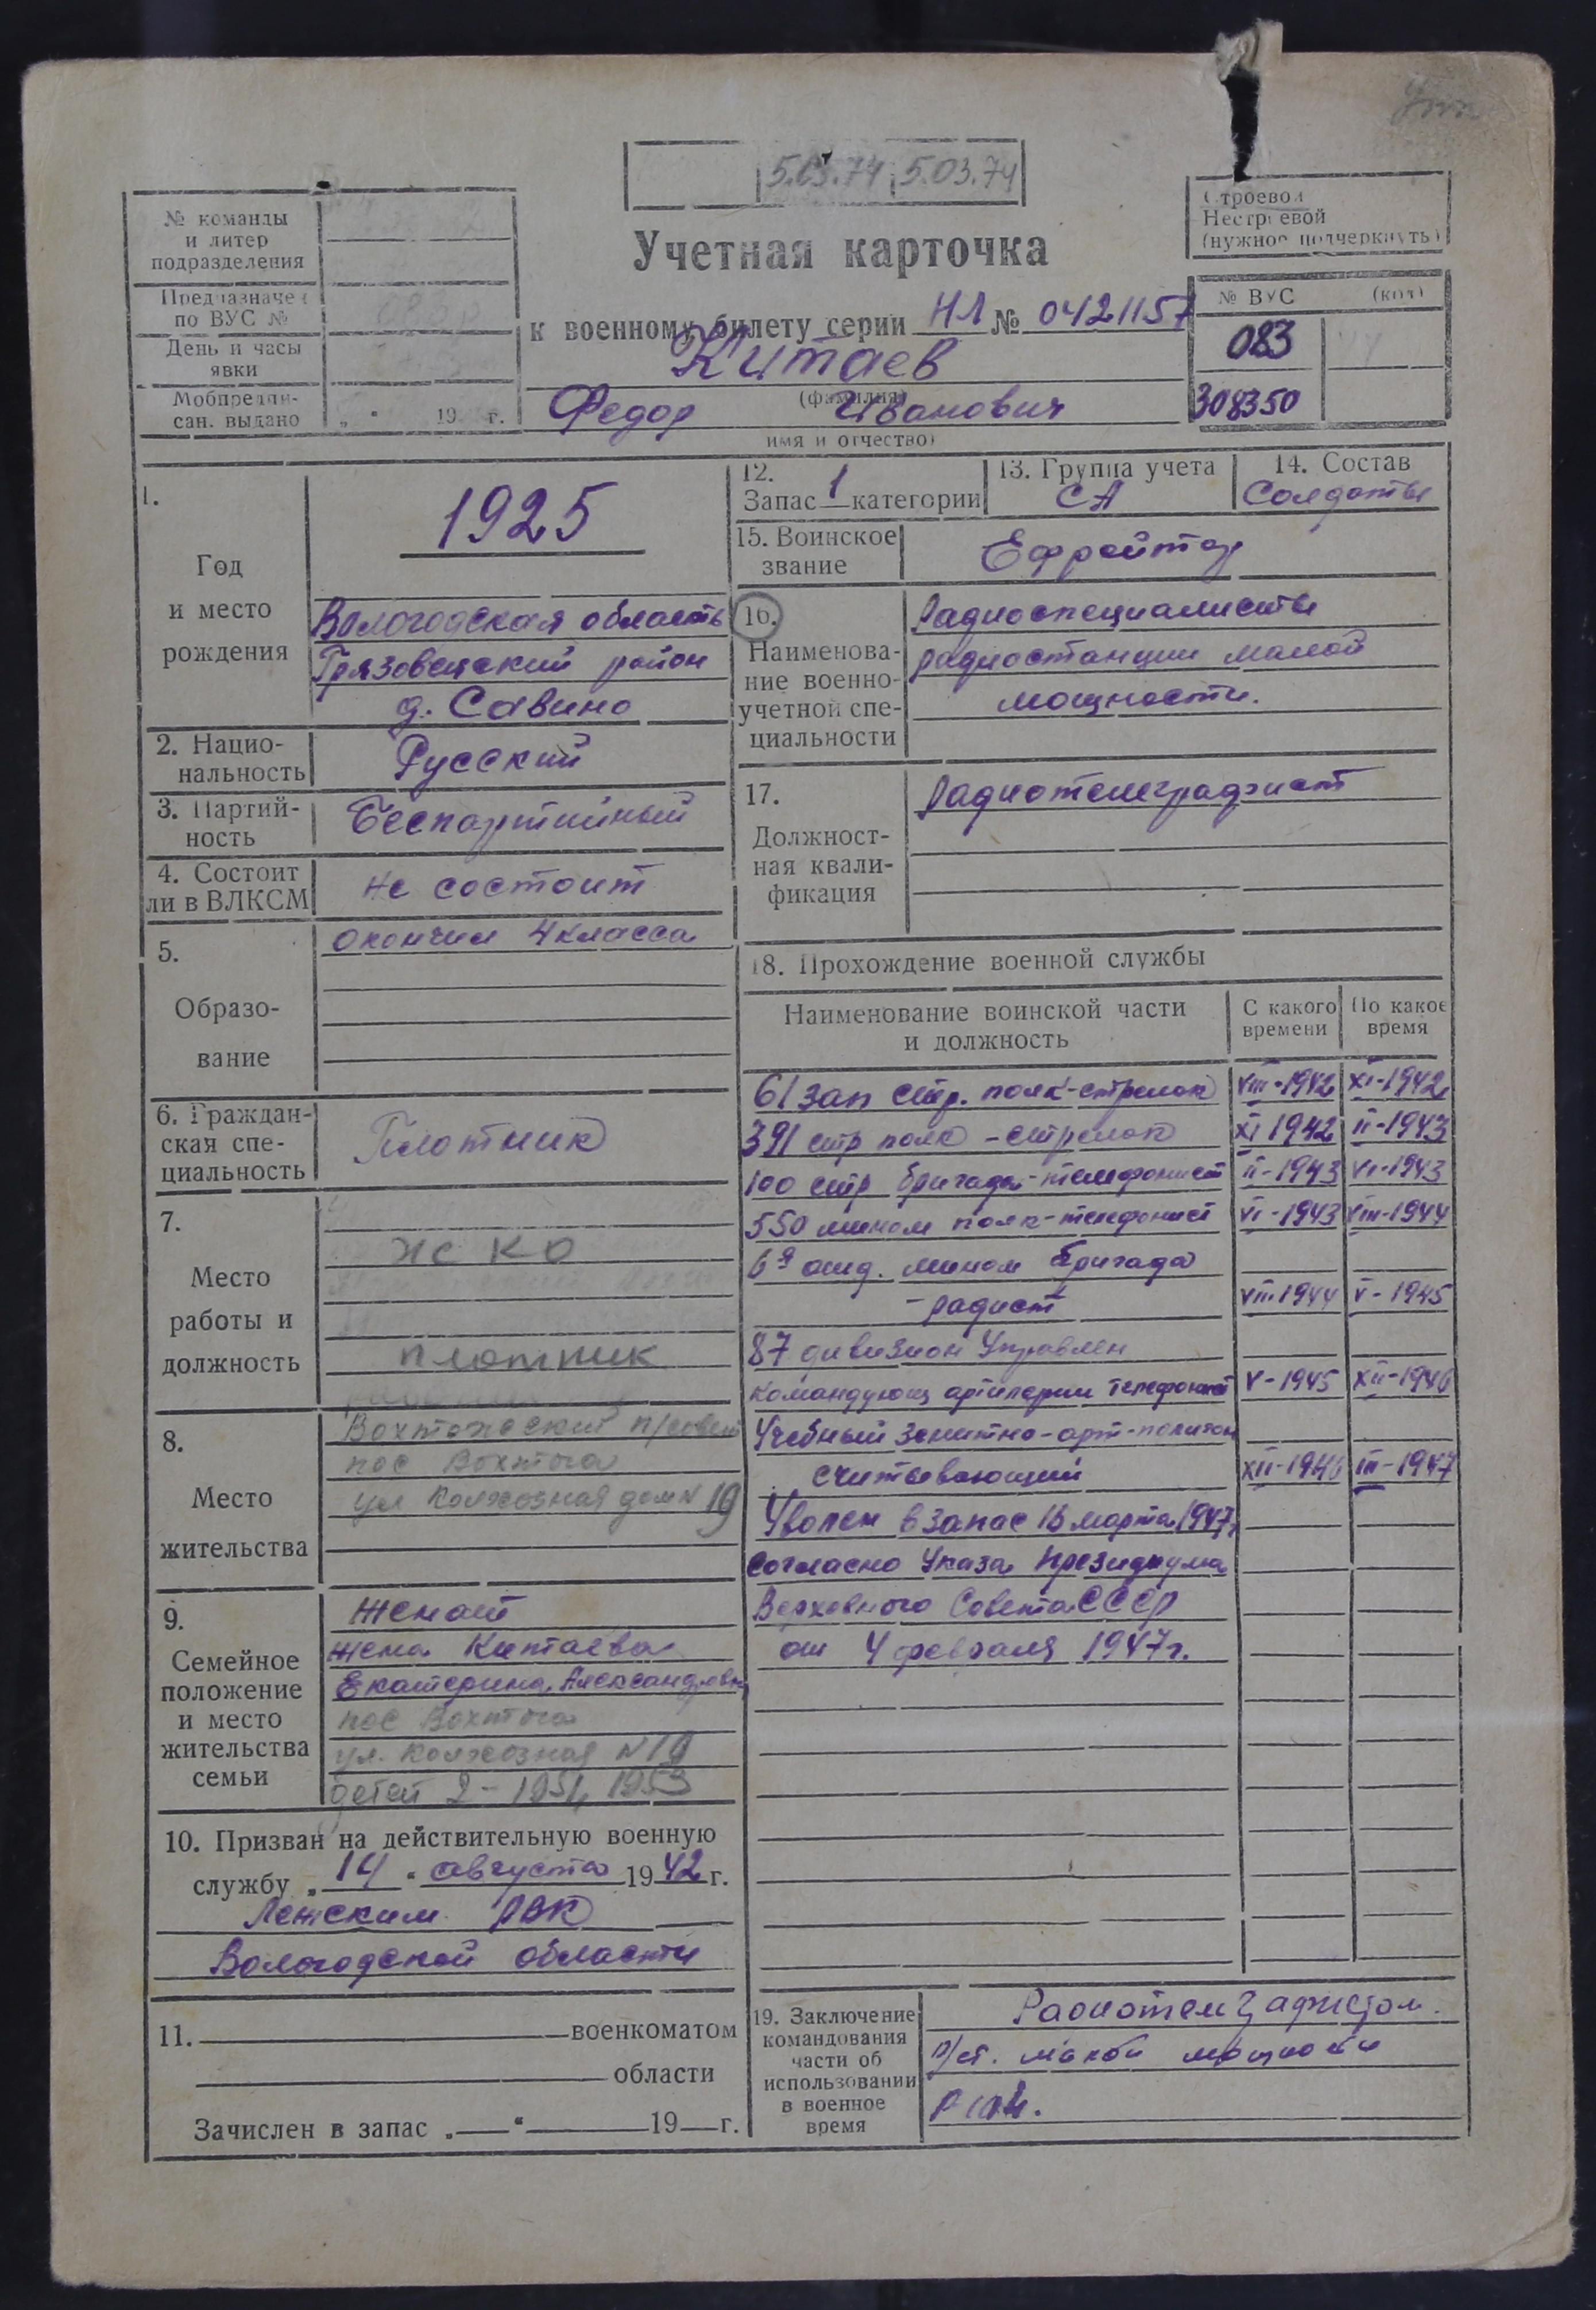 5.03.74 5.03.74
№ команды
и литер
подразделения
Предназначен
по ВУС №
День и часы
явки
Мобпредпи-
сан. выдано „ “ 19 г.
Учетная карточка
к военному билету серии НЛ № 0421157
Китаев
(фамилия)
Федор Иванович
имя и отчество)
Строевой
Нестроевой
(нужное подчеркнуть)
№ ВУС (код)
083
308350
1.
Год
и место
рождения
1925
Вологодская область
Грязовецкий район
д. Савино
2. Нацио-
нальность
Русский
3. Партий-
ность
Беспартийный
4. Состоит
ли в ВЛКСМ
не состоит
5.
Образо-
вание
окончил 4 класса
6. Граждан-
ская спе-
циальность
Плотник
7.
Место
работы и
должность
ЖКО
плотник
8.
Место
жительства
Вохтожский п/совет
пос Вохтога
ул Колхозная дом № 19
9.
Семейное
положение
и место
жительства
семьи
Женат
жена Китаева
Екатерина Александровна
пос Вохтога
ул. Колхозная № 19
детей 2 - 1951, 1953
10. Призван на действительную военную
службу „14“ августа 1942 г.
Лежским РВК
Вологодской области
11. военкоматом
области
Зачислен в запас „ “ 19 г.
12.
Запас 1 категории
13. Группа учета
СА
14. Состав
Солдаты
15. Воинское
звание
Ефрейтор
16.
Наименова-
ние военно-
учетной спе-
циальности
Радиоспециалисты
радиостанции малой
мощности.
17.
Должност-
ная квали-
фикация
Радиотелеграфист
18. Прохождение военной службы
Наименование воинской части
и должность
С какого
времени
По какое
время
61 зап стр. полк-стрелок VIII-1942 XI-1942
391 стр полк - стрелок XI 1942 II-1943
100 стр бригада-телефонист II-1943 VI-1943
550 мином полк-телефонист VI-1943 VIII-1944
6я отд. мином бригада
- радист VIII-1944 V-1945
87 дивизион Управлен
Командующ артилерии телефонист V-1945 XII-1946
Учебный зенитно-арт-полигон
считывающий XII-1946 III-1947
Уволен в запас 16 марта 1947г
согласно Указа Президиума
Верховного Совета СССР
от 4 февраля 1947г.
19. Заключение
командования
части об
использовании
в военное
время
Радиотелеграфистом.
р/ст. малой мощности